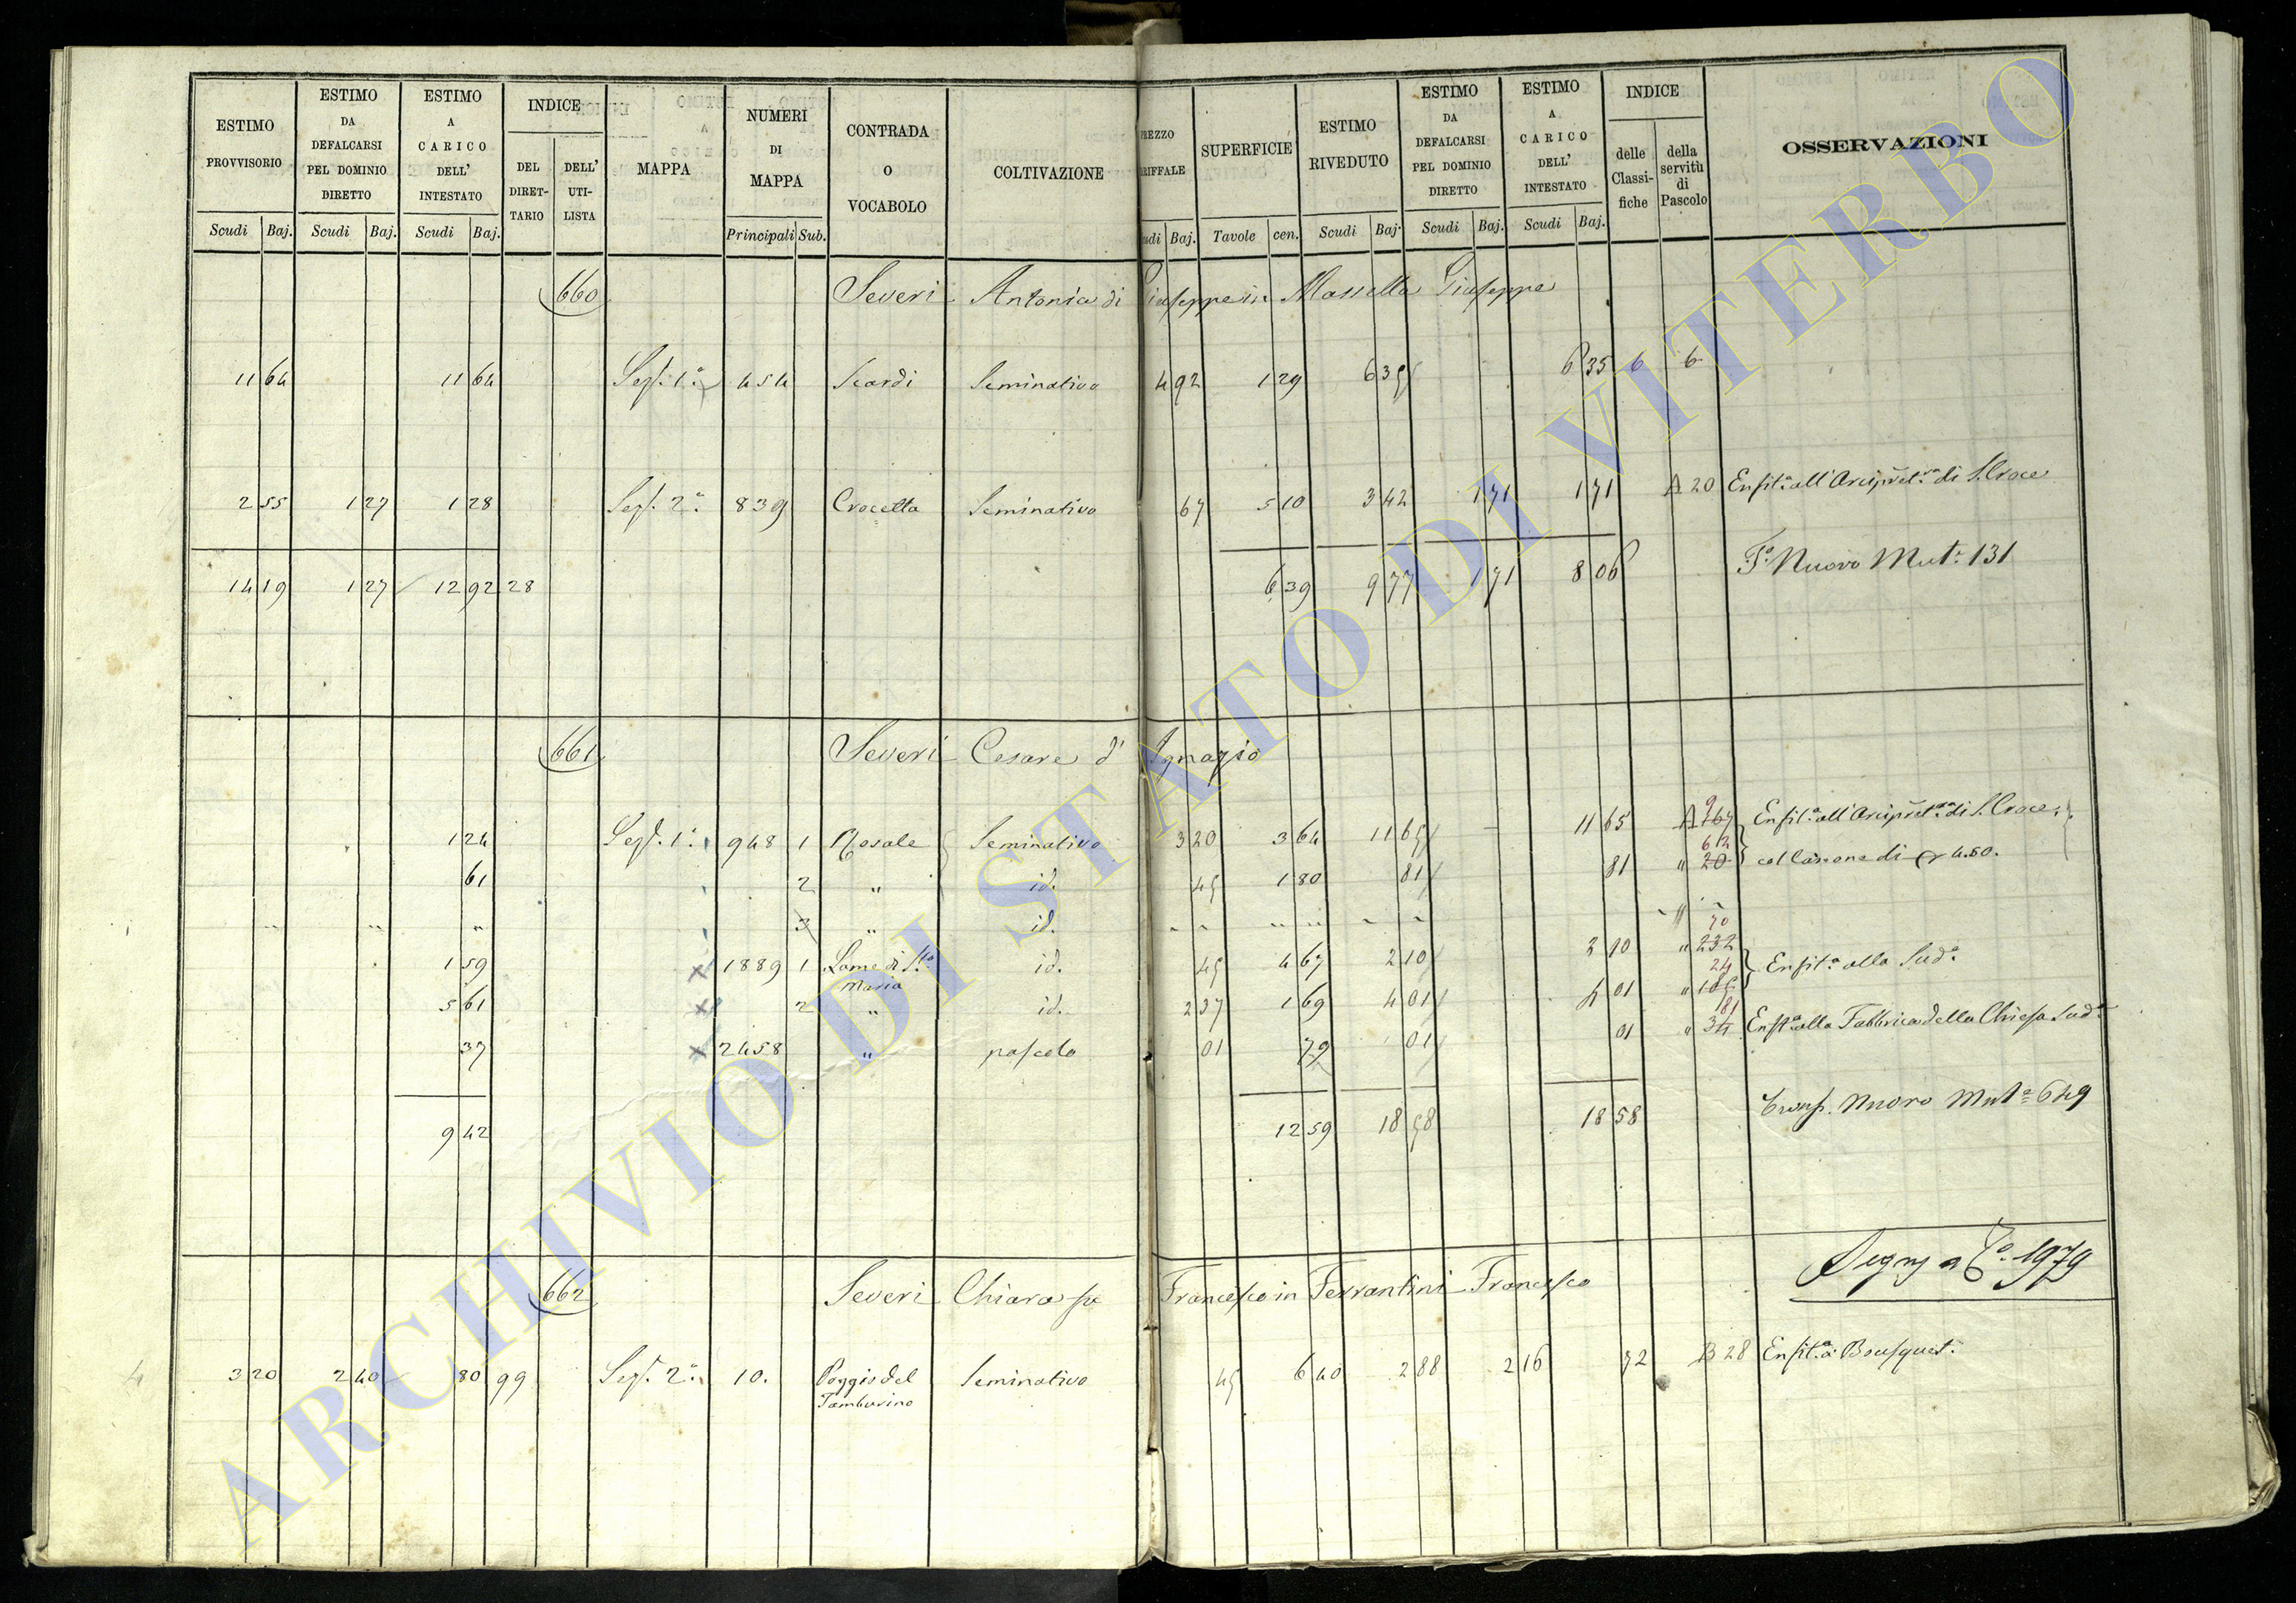 ESTIMO PROVVISORIO Scudi Baj.
ESTIMO DA DEFALCARSI PEL DOMINIO DIRETTO Scudi Baj.
ESTIMO A CARICO DELL' INTESTATO Scudi Baj.
INDICE DEL DIRET-TARIO DELL' UTI-LISTA
MAPPA
NUMERI DI MAPPA Principali Sub.
CONTRADA O VOCABOLO
COLTIVAZIONE
REZZO RIFFALE udi Baj.
SUPERFICIE Tavole cen.
ESTIMO RIVEDUTO Scudi Baj.
ESTIMO DA DEFALCARSI PEL DOMINIO DIRETTO Scudi Baj.
ESTIMO A CARICO DELL' INTESTATO Scudi Baj.
INDICE delle Classi-fiche della servitù di Pascolo
OSSERVAZIONI
660 Severi Antonia di Giuseppe in Massella Giuseppe
11 64 11 64 Sez. 1a 454 Scardi Seminativo 4 92 1 29 6 35 6 35 6 6
2 55 1 27 1 28 Sez. 2a 839 Crocetta Seminativo 67 5 10 3 42 1 71 1 71 A 20 Enfita all' Arcipreta di S. Croce
14 19 1 27 12 92 28 6 39 9 77 1 71 8 06 To Nuovo Muta 131
661 Severi Cesare d' Ignazio
1 24 Sez. 1a 948 1 Rosale Seminativo 3 20 3 64 11 65 11 65 A 267 9 Enfita all' Arcipreta di S. Croce
61 2 " id. 45 1 80 81 81 " 20 612 col Canone di 4.50.
" " " 3 " id. " " " "
1 59 1889 1 Lame di Sta Maria id. 45 4 67 2 10 2 10 " 232 70 Enfita alla Suda
5 61 2 " id. 2 37 1 69 4 01 4 01 24
37 2458 " pascolo 01 79 01 01 " 34 181 Enfta alla Fabbrica della Chiesa Suda
9 42 12 59 18 58 18 58 Trasp. Nuovo Muta 649
Segue a To 1979
662 Severi Chiara fu Francesco in Ferrantini Francesco
4 3 20 2 40 80 99 Sez. 2a 10. Poggio del Tamburino Seminativo 45 6 40 2 88 2 16 72 B 28 Enfita a Bousquet
ARCHIVIO DI STATO DI VITERBO